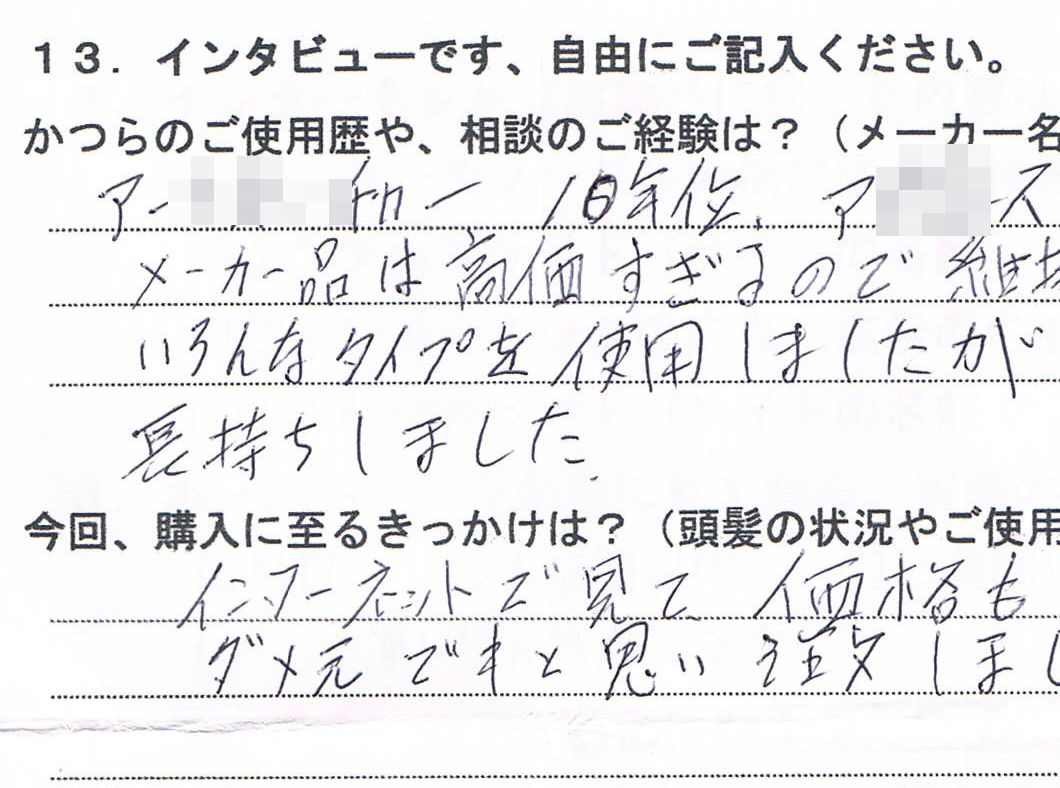 13．インタビューです、自由にご記入ください。
かつらのご使用歴や、相談のご経験は？（メーカー名
アー 10年位、アース
メーカー品は高価すぎるので継持
いろんなタイプを使用しましたが
長持ちしました。
今回、購入に至るきっかけは？（頭髪の状況やご使用
インターネットで見て 価格も
ダメ元でもと思い 注文しまし